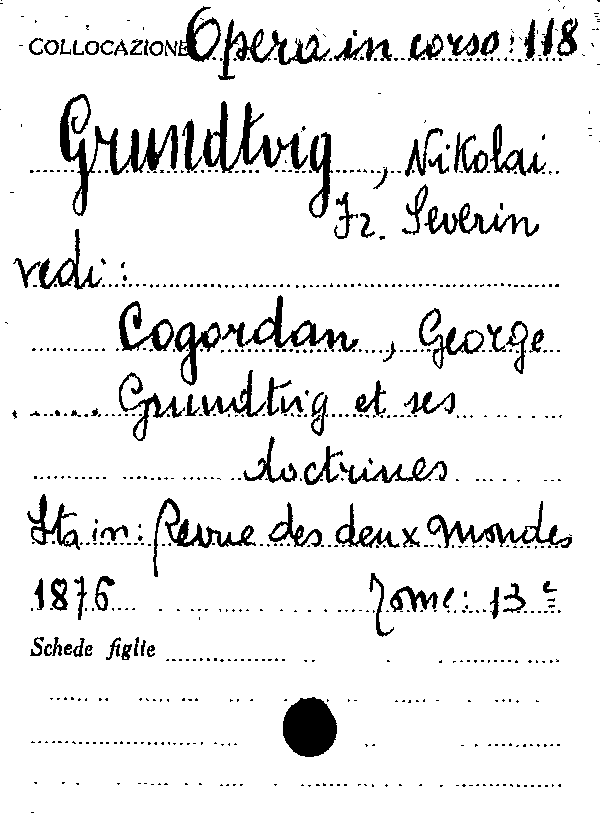 COLLOCAZIONE Opera in corso: 118
Grundtvig, Nikolai
Fr. Severin
vedi:
Cogordan, George
Grundtvig et ses
doctrines
Sta in: Revue des deux Mondes
1876 Tome: 13e
Schede figlie